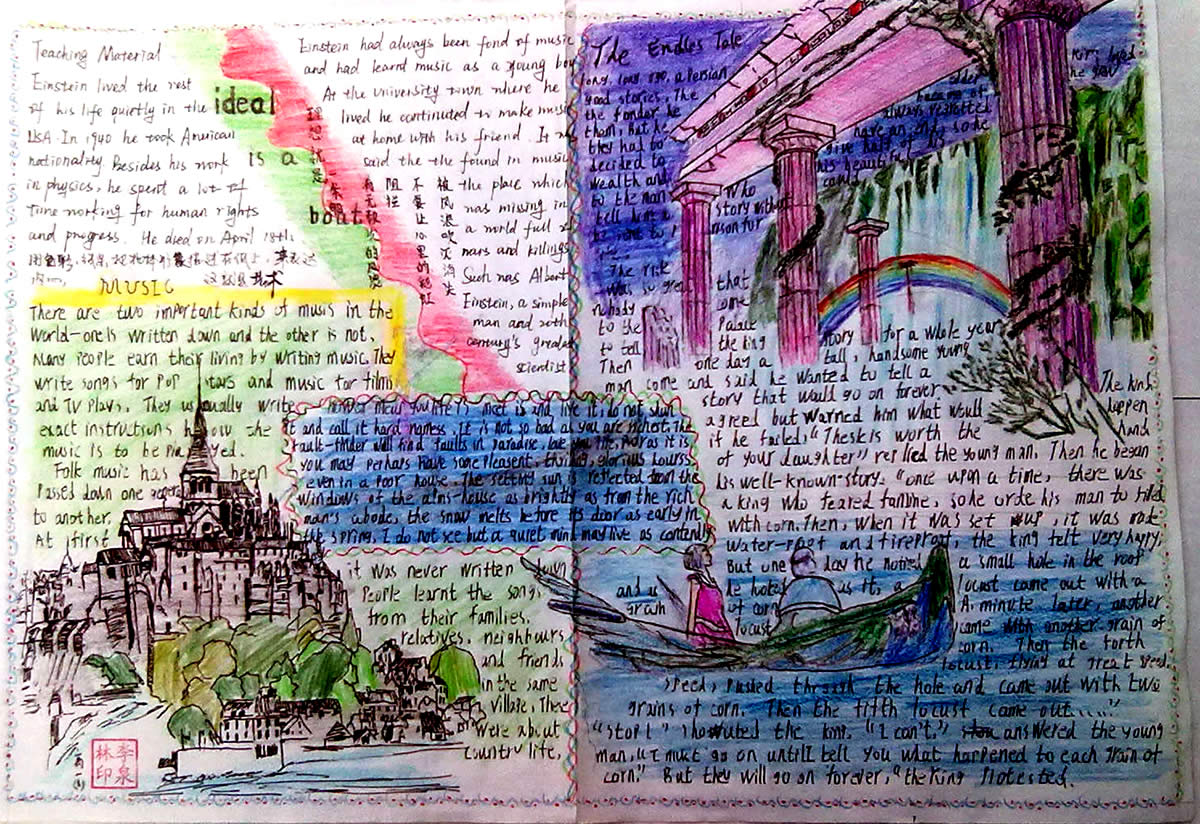 Teaching Material
Einstein lived the rest
of his life quietly in the
USA. In 1940 he took American
nationality. Besides his work
in physics, he spent a lot of
time working for human rights
and progress. He died on April 18th.
ideal
IS A
boat
Einstein had always been fond of music
and had learnt music as a young boy
At the university town where he
lived he continuted to make music
at home with his friend. It
said the the found in music
the place which
was missing in
a world full of
wars and killings
Such was Albert
Einstein, a simple
man and 20th
century's greatest
scientist
理想就是
一条船
有无数
阻拦
不要让心里的彩虹
被风浪吹灭消失
MUSIC
There are two important kinds of music in the
World-one is written down and the other is not.
Many People earn their living by writing music. They
write songs for Pop stars and music for films
and TV Plays. They usually write
exact instructions how the
music is to be Played.
Folk music has been
Passed down one
to another.
At first
it was never written down
People learnt the songs
from their families.
relatives, neighbours
and friends
in the same
village, These
were about
country life.
However mean your life is meet is and live it; do not shun
it and call it hard names. It is not so bad as you are richest. The
fault-finder will find faults in paradise. Love you life, Poor as it is
you may perhaps have some pleasent, thrilling, glorious hourss
even in a Poor house. The setting sun is reflected from the
windows of the alms-house as brightly as from the rich
man's abode, the snow melts before its door as early in
the spring. I do not see but a quiet mind may live as contently
The Endles Tale
long, long ago, a Persian
good stories. The
the fonder he
them, But he
they had to
decided to
wealth and
to the man
tell him a
king loved
older
he grew
became of
always regretted
have an end, so he
give half of his
his beautiful
Who
story without
The risk
was so great that
nobody come
to the Palace
to tell the king story for a whole year
Then one day a tall, handsome young
man come and said he wanted to tell a
story that would go on forever. The king
agreed but warned him what would happen
if he failed, "The risk is worth the hand
of your daughter" replied the young man. Then he began
his well-known-story. "once upon a time, there was
a king who feared famine, so he orde his man to
with corn. Then, when it was set up, it was made
Water-Proof and fireproof, the king felt very happy.
But one day he noticed a small hole in the roof
and as he looked as it, a locust came out with a
grain of corn A minute later, another
locust came with another grain of
corn. Then the forth
locust, flying at great speed,
speed, Pushed through the hole and came out with two
grains of corn. Then the fifth locust came out......"
"Stop!" shouted the king. "I can't," answered the young
man, "I must go on until I tell you what happened to each grain of
corn." But they will go on forever, "the King Protested.
李泉
林印